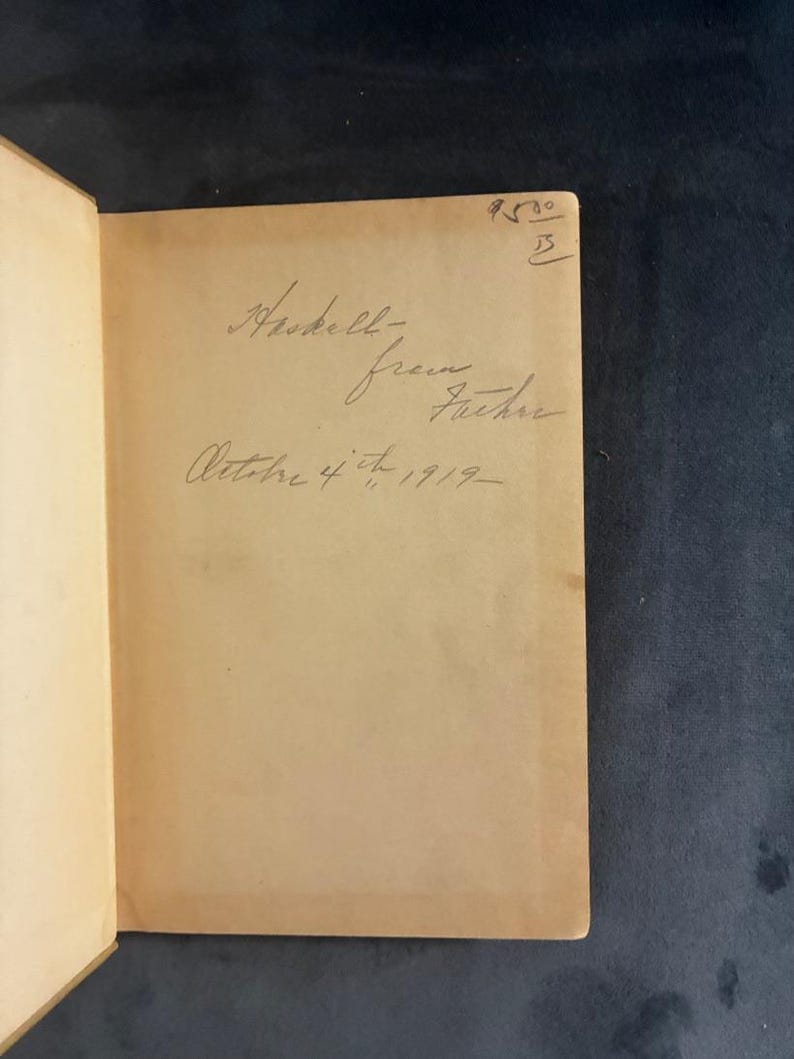 95 00
B
Haskell –
from
Father
October 4th 1919 –